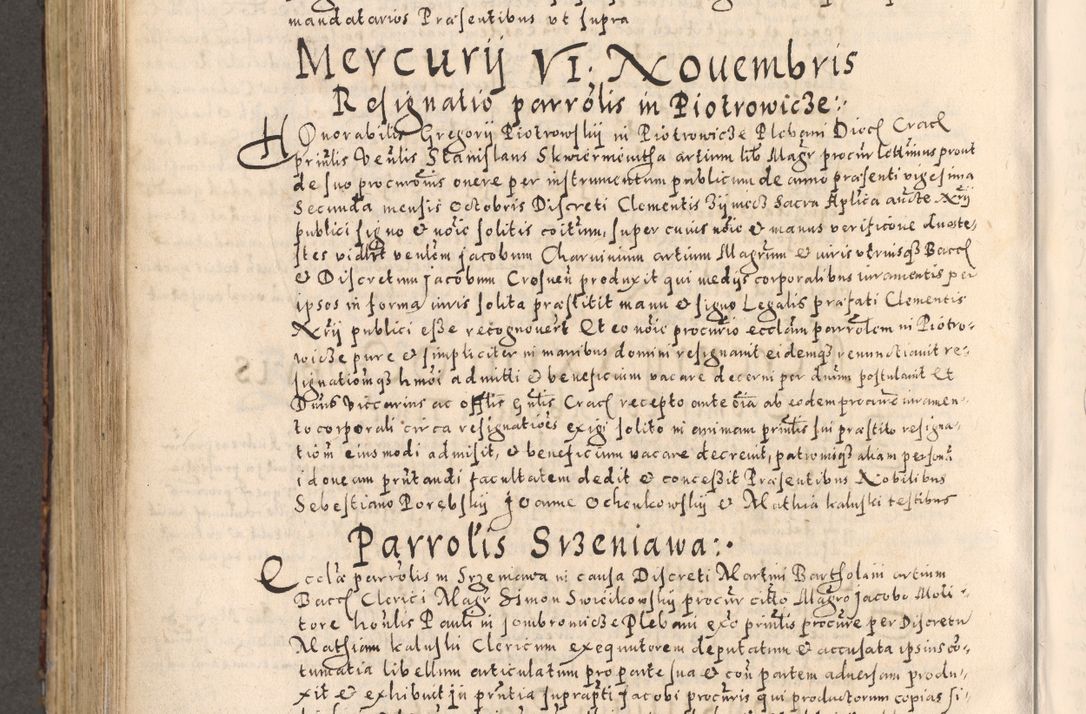 mandatarios Præsentibus ut supra
Mercurij VI. Nouembris
Resignatio parrólis in Piotrowicze
Honorabilis Gregorij Piotrowskij in Piotrowicze Plebani Dioc Crac
prinlis Venlis Stanislaus Skwiermiontha artium lib Magr procur lettimus prout
de suo procurōnis onere per instrumentum publicum de anno præsenti vigesima
Secunda mensis Octobris Discreti Clementis Sacra Aplica aucte
publici signo & noīe solitis coitum, super cuius noīe & manus verificone duos te-
stes vidlt venlem Jacobum Charuinium artium Magrum & iuris utriusq Bacc
& Discretum Jacobum Crosnen produxit qui medys corporalibus iuramentis per
ipsos in forma iuris solita præstitit manu & signo Legalis præfati Clementis
Xrij publici esse recognouert Et eo noīe procurio ecclam parrolem in Piotro-
wicze pure & simpliciter in manibus domini resignauit eidemq renunctiauit re-
signationiq hmōi admitti & beneficium vacare decerni per dnum postulauit Et
Dnus Viccarius ac offlis gnlis Crac recepto ante oīa ab eodem procure iuramen-
to corporali circa resignatiōes exigi solito in animam prinlis sui præstito resigna-
tiōm eiusmodi admisit, & beneficium vacare decreuit, patronisq aliam personā
idoneam prntandi facultatem dedit & concessit Præsentibus Nobilibus
Sebestiano Porębskij Joanne Ochenkowskij & Mathia kaluski testibus
Parrolis Srzeniawa
Ecclæ parrolis in Srzeniawa in causa Discreti Martini Bartholani artium
Bacc Clerici Magr Simon procur citto Magro Jacobo Moli-
tore honlis Pauli in Jombrowicze Plebani exo prinlis procure per Discretu
Mathiam kaluskij Clericum exequutorem deputatum & accusata ipsius cō-
tumatia libellum articulatum pro parte sua & con partem aduersam produ-
xit & exhibuit in prntia suprapti Jacobi procuris qui productorum copias si-